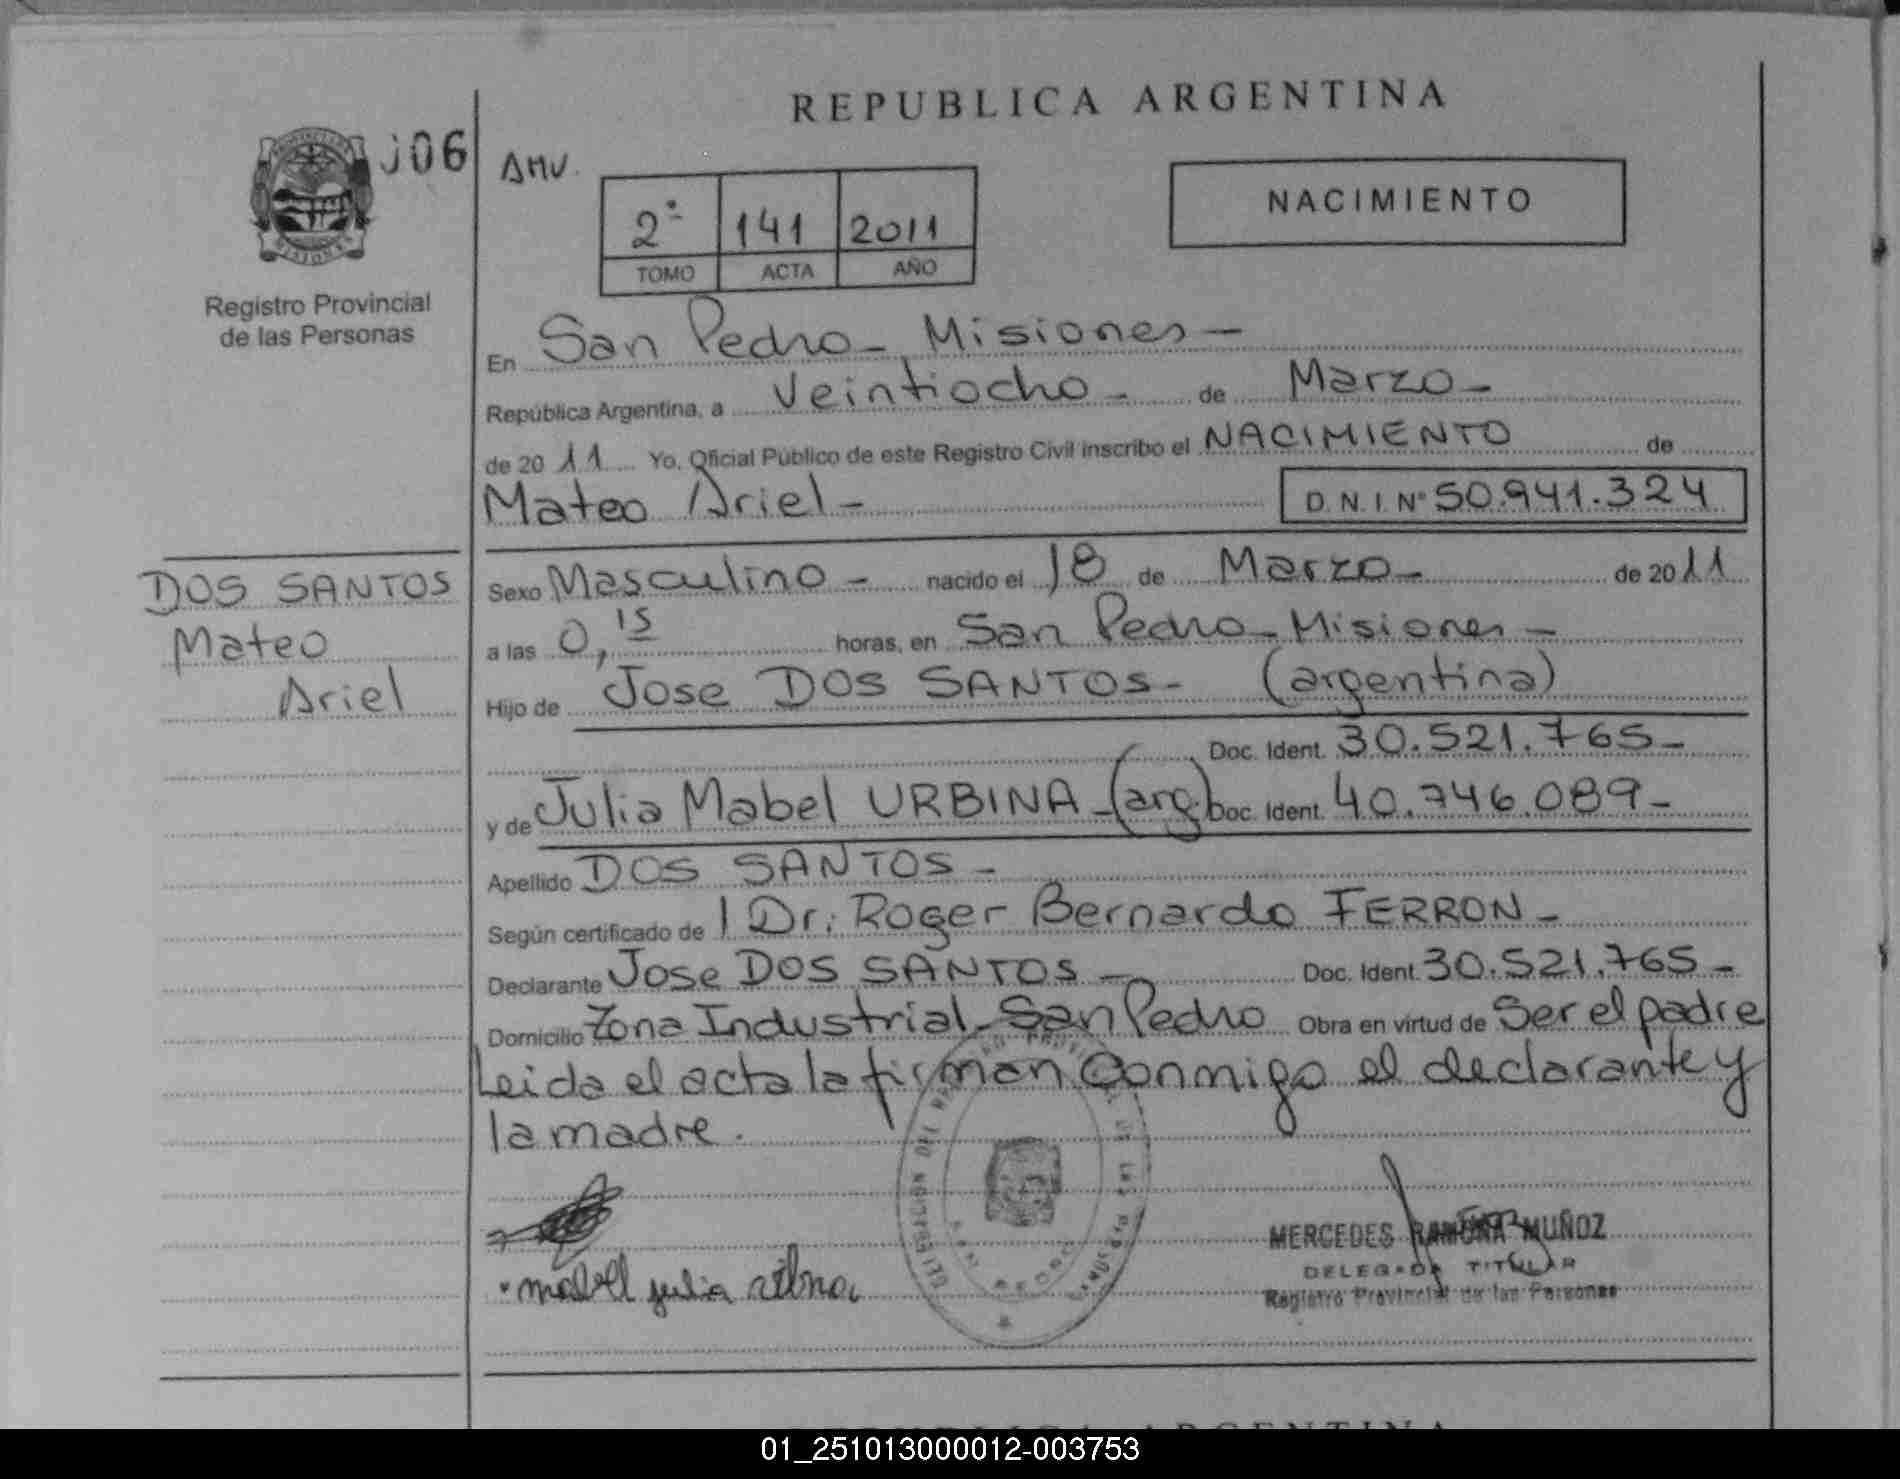 REPUBLICA ARGENTINA
J06
AMV.
NACIMIENTO
2º 141 2011
TOMO ACTA AÑO
Registro Provincial
de las Personas
En San Pedro - Misiones -
República Argentina, a Veintiocho - de Marzo -
de 20 11 Yo, Oficial Público de este Registro Civil inscribo el NACIMIENTO de
Mateo Ariel - D.N.I. Nº 50.941.324
DOS SANTOS
Mateo
Ariel
Sexo Masculino - nacido el 18 de Marzo - de 20 11
a las 0,15 horas, en San Pedro - Misiones -
Hijo de Jose DOS SANTOS - (argentina)
Doc. Ident. 30.521.765 -
y de Julia Mabel URBINA - (arg.) Doc. Ident. 40.746.089 -
Apellido DOS SANTOS -
Según certificado de l Dr. Roger Bernardo FERRON -
Declarante Jose DOS SANTOS - Doc. Ident. 30.521.765 -
Domicilio Zona Industrial - San Pedro Obra en virtud de Ser el padre
Leida el acta la firman conmigo el declarante y
la madre.
DELEGACION DEL REGISTRO PROVINCIAL DE LAS PERSONAS
SAN PEDRO
MERCEDES RAMONA MUÑOZ
DELEGADA TITULAR
Registro Provincial de las Personas
mabel julia
REPUBLICA ARGENTINA
01_251013000012-003753